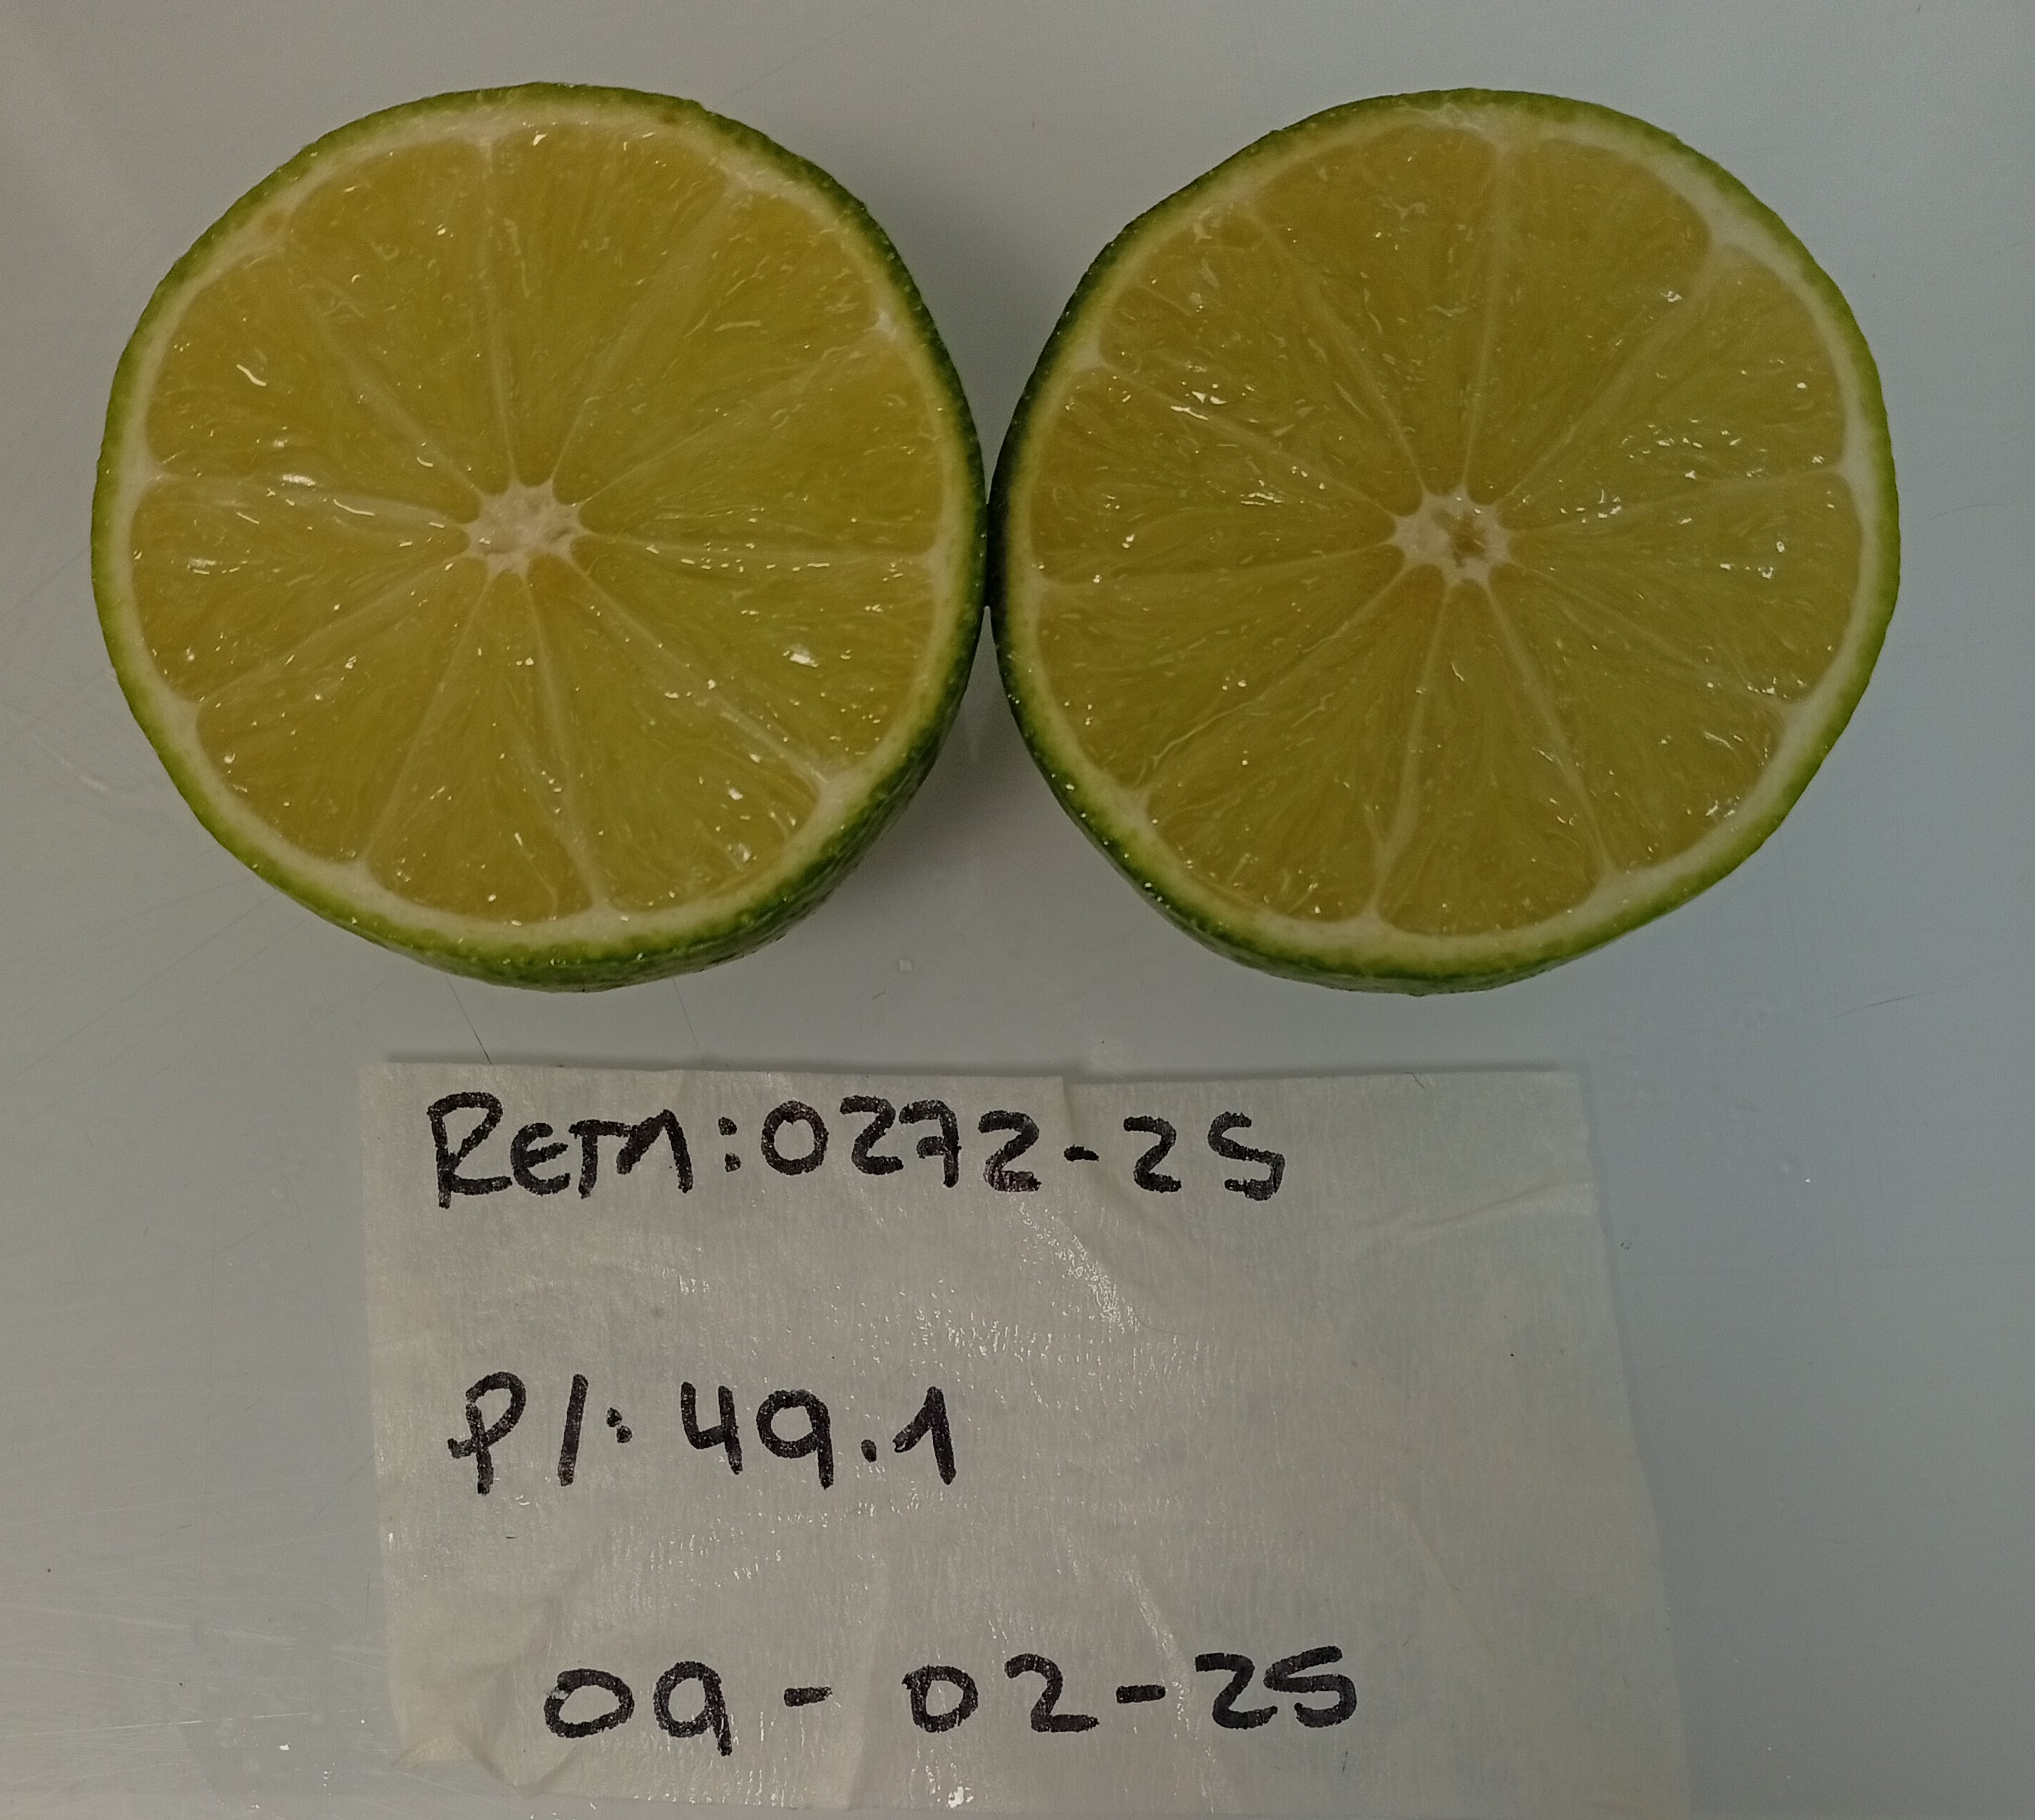 RETA: 0272-25
P/: 49.1
09-02-25